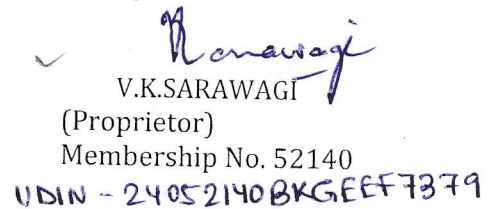 V.K.SARAWAGI
(Proprietor)
Membership No. 52140
UDIN - 24052140BKGEEF7379